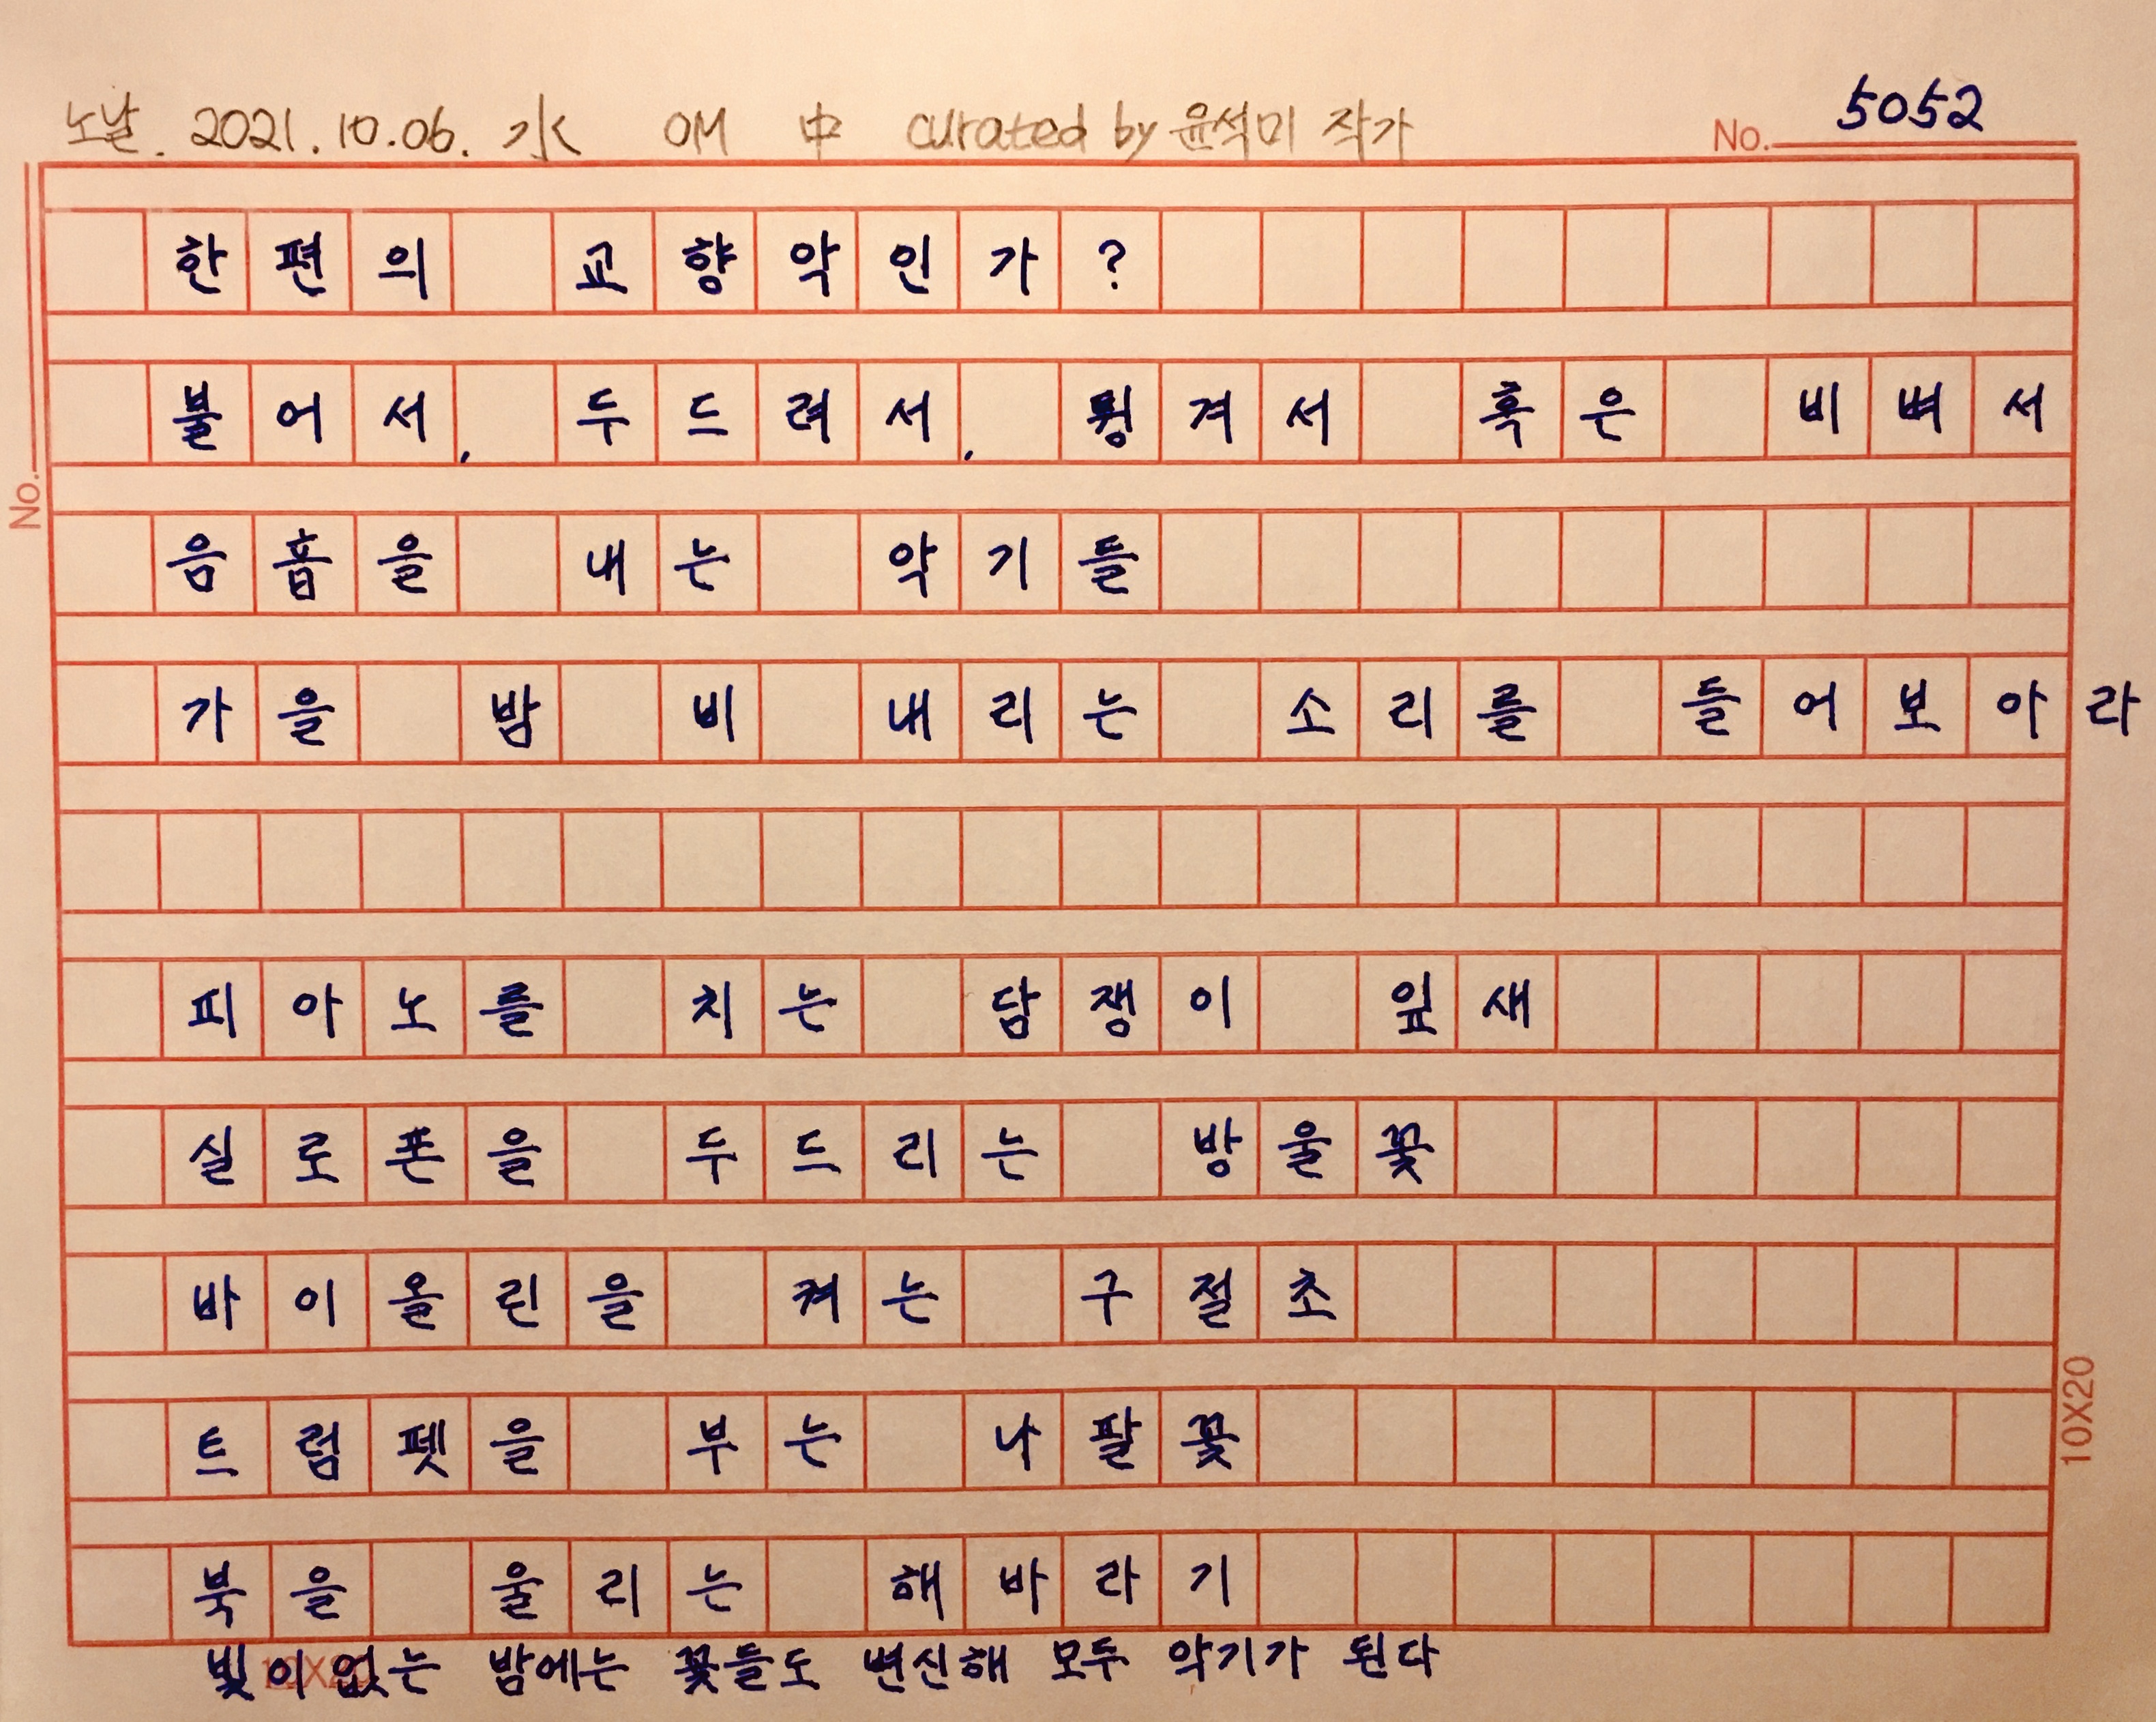 노날. 2021.10.06. 水 OM 中 curated by 윤석미 작가
No. 5052
한편의 교향악인가?
불어서, 두드려서, 튕겨서 혹은 비벼서
음音을 내는 악기들
No.
가을 밤 비 내리는 소리를 들어보아라
피아노를 치는 담쟁이 잎새
실로폰을 두드리는 방울꽃
바이올린을 켜는 구절초
트럼펫을 부는 나팔꽃
10X20
북을 울리는 해바라기
빛이 없는 밤에는 꽃들도 변신해 모두 악기가 된다
10X20